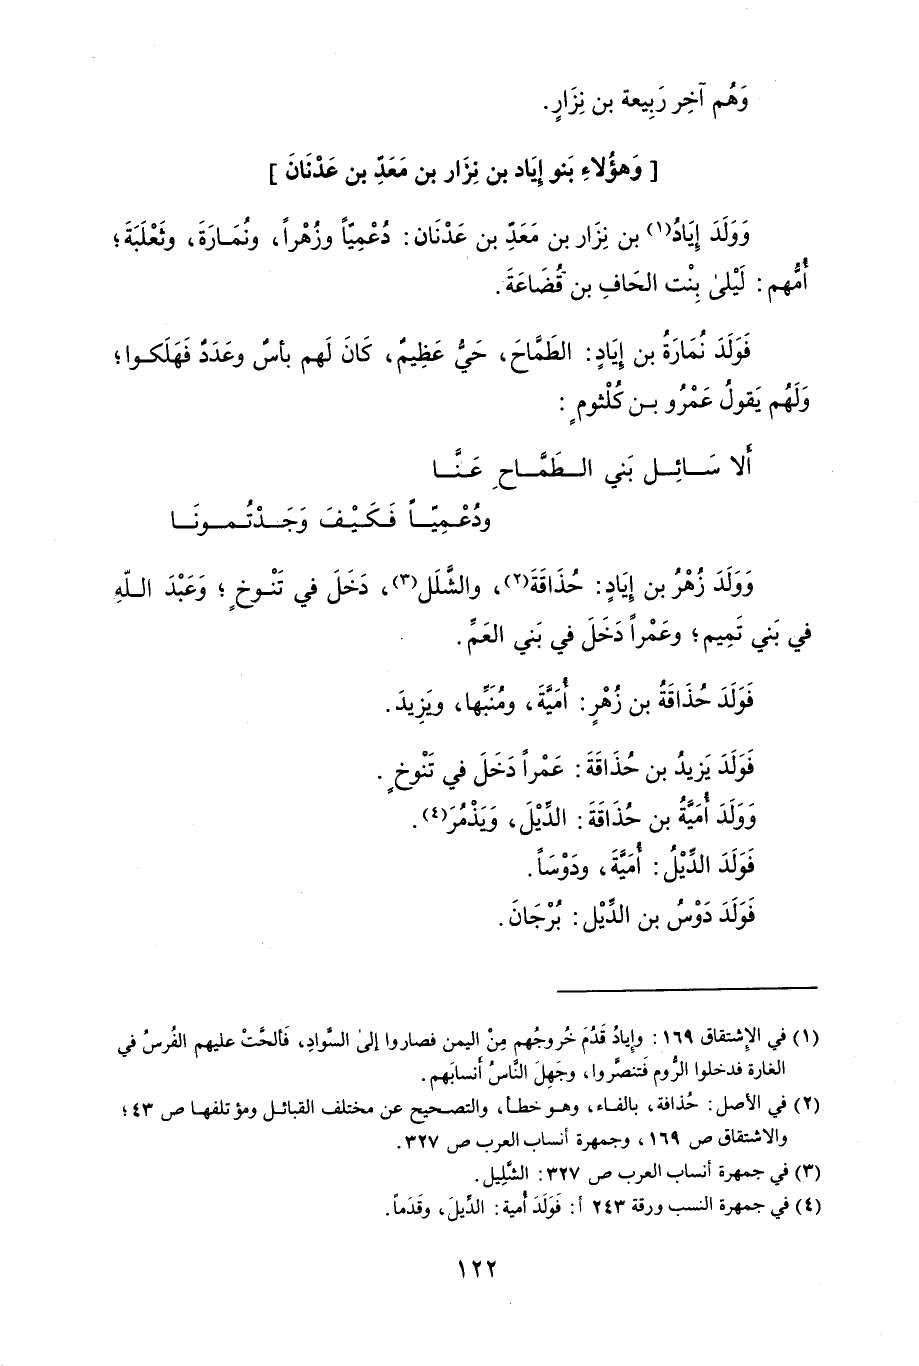 وَهُم آخِر رَبِيعة بن نِزَارٍ.
[ وَهؤُلاءِ بَنو إيَاد بن نِزَار بن مَعَدّ بن عَدْنَانَ ]
وَوَلَدَ إيَادُ(١) بن نِزَار بن مَعَدِّ بن عَدْنَان: دُعْمِيّاً وزُهْراً، ونُمَـارَةَ، وثَعْلَبَةَ؛
أُمُّهم: لَيْلىٰ بِنْت الحَافِ بن قُضَاعَةَ.
فَوَلَدَ نُمَارَةُ بن إيَادٍ: الطَمَّاحَ، حَيُّ عَظِيمٌ، كَانَ لَهم بأسٌ وعَدَدٌ فَهَلَكـوا؛
وَلَهُم يَقولُ عَمْرُو بـن كُلْثوم ٍ:
أَلا سَــائِـل بَني الـطَمَّـاح ِ عَـنَّـا
ودُعْـمِيّـاً فَـكَـيْـفَ وَجَـدْتُـمـونَـا
وَوَلَدَ زُهْرُ بن إيَادٍ: حُذَاقَةَ(٢)، والشَّلَل(٣)، دَخَلَ في تَنْـوخ ٍ؛ وَعَبْدَ اللّهِ
في بَني تَمِيم؛ وعَمْراً دَخَلَ في بَني العَمِّ.
فَوَلَدَ حُذَاقَةُ بن زُهْرٍ: أُمَيَّةَ، ومُنَبِّها، ويَزِيدَ.
فَوَلَدَ يَزيدُ بن حُذَاقَةَ: عَمْراً دَخَلَ في تَنْوخ ٍ.
وَوَلَدَ أُمَيَّةُ بن حُذَاقَةَ: الدِّيْلَ، وَيَذْمُرَ(٤).
فَوَلَدَ الدِّيْلُ: أُمَيَّةَ، ودَوْسَاً.
فَوَلَدَ دَوْسُ بن الدِّيْل: بُرْجَانَ.
(١) في الإشتقاق ١٦٩: وإيادُ قَدُمَ خُروجُهم مِنْ اليمن فصاروا إلىٰ السَّوادِ، فَألحَّتْ عليهم الفُرسُ في
الغارة فدخلوا الرُّوم فَتنصَّروا، وجَهِلَ النَّاسُ أَنسابَهم.
(٢) في الأصل: حُذافة، بالفـاء، وهـو خطـأ، والتصـحيح عن مختلف القبائـل ومؤتلفهـا ص ٤٣؛
والاشتقاق ص ١٦٩، وجمهرة أنساب العرب ص ٣٢٧.
(٣) في جمهرة أنساب العرب ص ٣٢٧: الشَّلِيل.
(٤) في جمهرة النسب ورقة ٢٤٣ أ: فَوَلَدَ أُمية: الدِّيلَ، وقَدَماً.
١٢٢